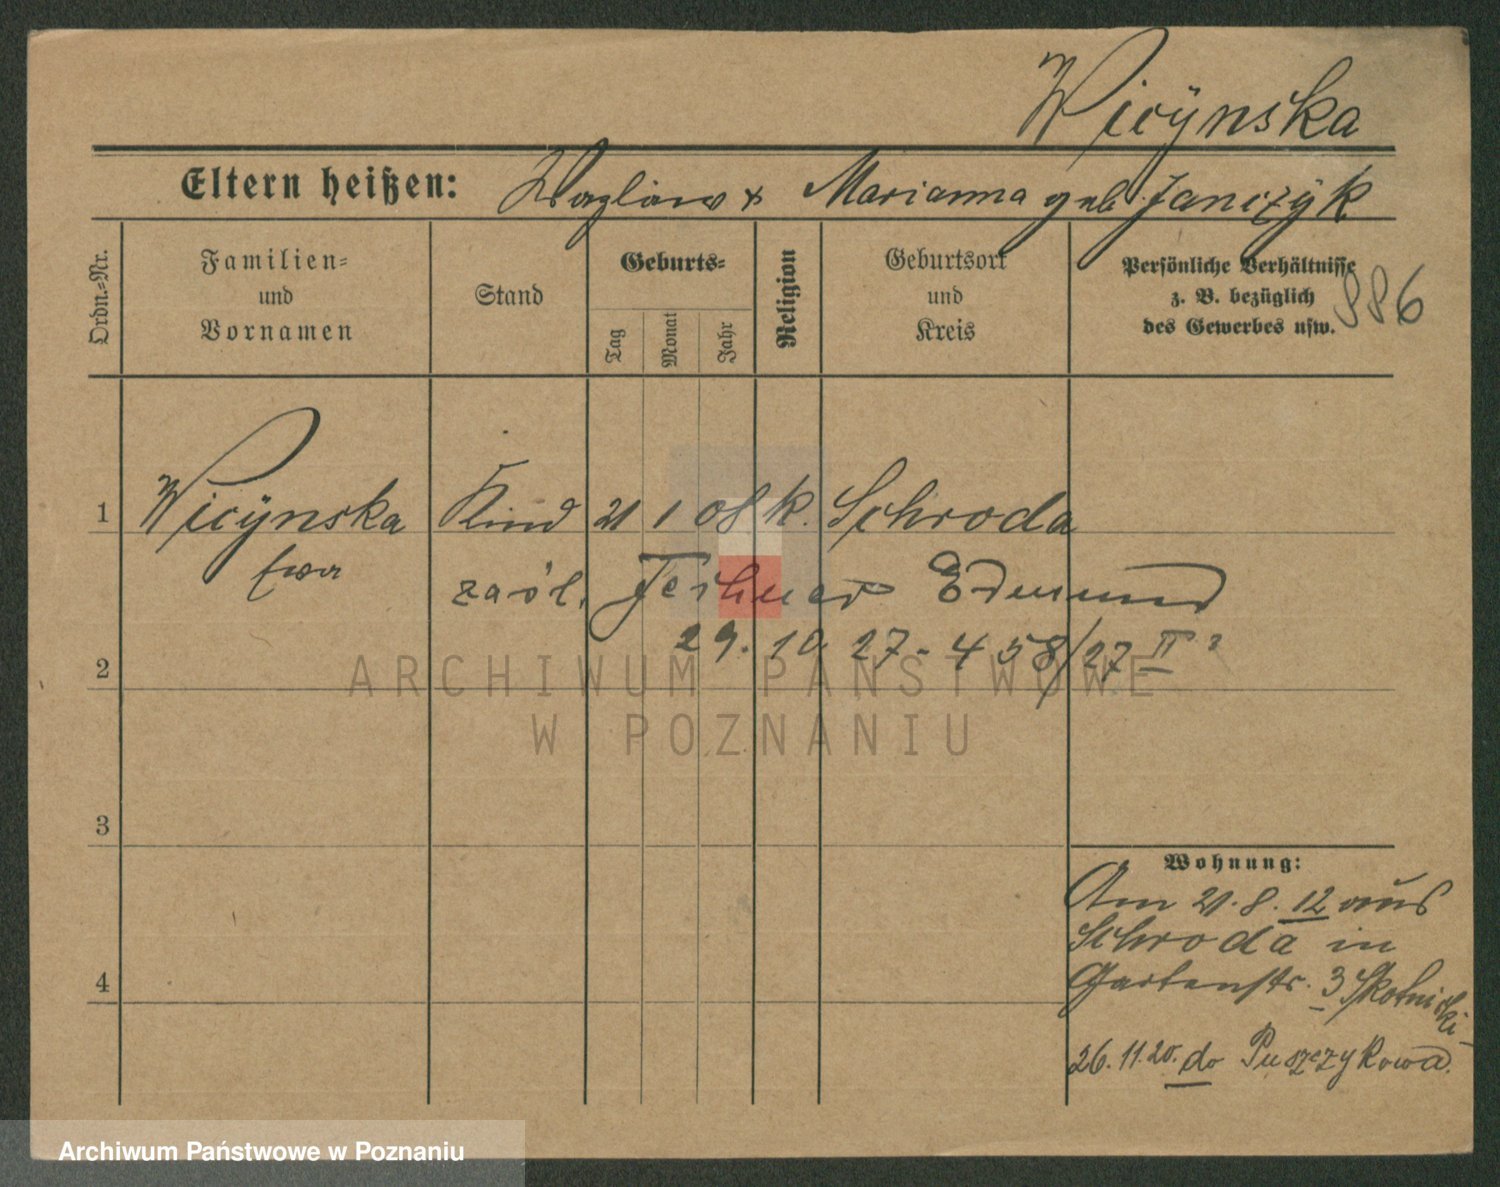 Wicÿnska
Eltern heißen: Wazlaw & Marianna geb. Janczÿk
Ordn.-Nr.
Familien-
und
Vornamen
Stand
Geburts-
Tag
Monat
Jahr
Religion
Geburtsort
und
Kreis
Persönliche Verhältnisse
z. B. bezüglich
des Gewerbes usw.
886
1 Wicÿnska Kind 21 1 08 k. Schroda
Ewa
zaśl. Teshner Edmund
29. 10. 27 - 458/27 II
2
ARCHIWUM PAŃSTWOWE
W POZNANIU
3
Wohnung:
Am 21. 8. 12 aus
Schroda in
Gartenstr. 3 Skotnicki
4
26. 11. 20. do Puszczykowa.
Archiwum Państwowe w Poznaniu